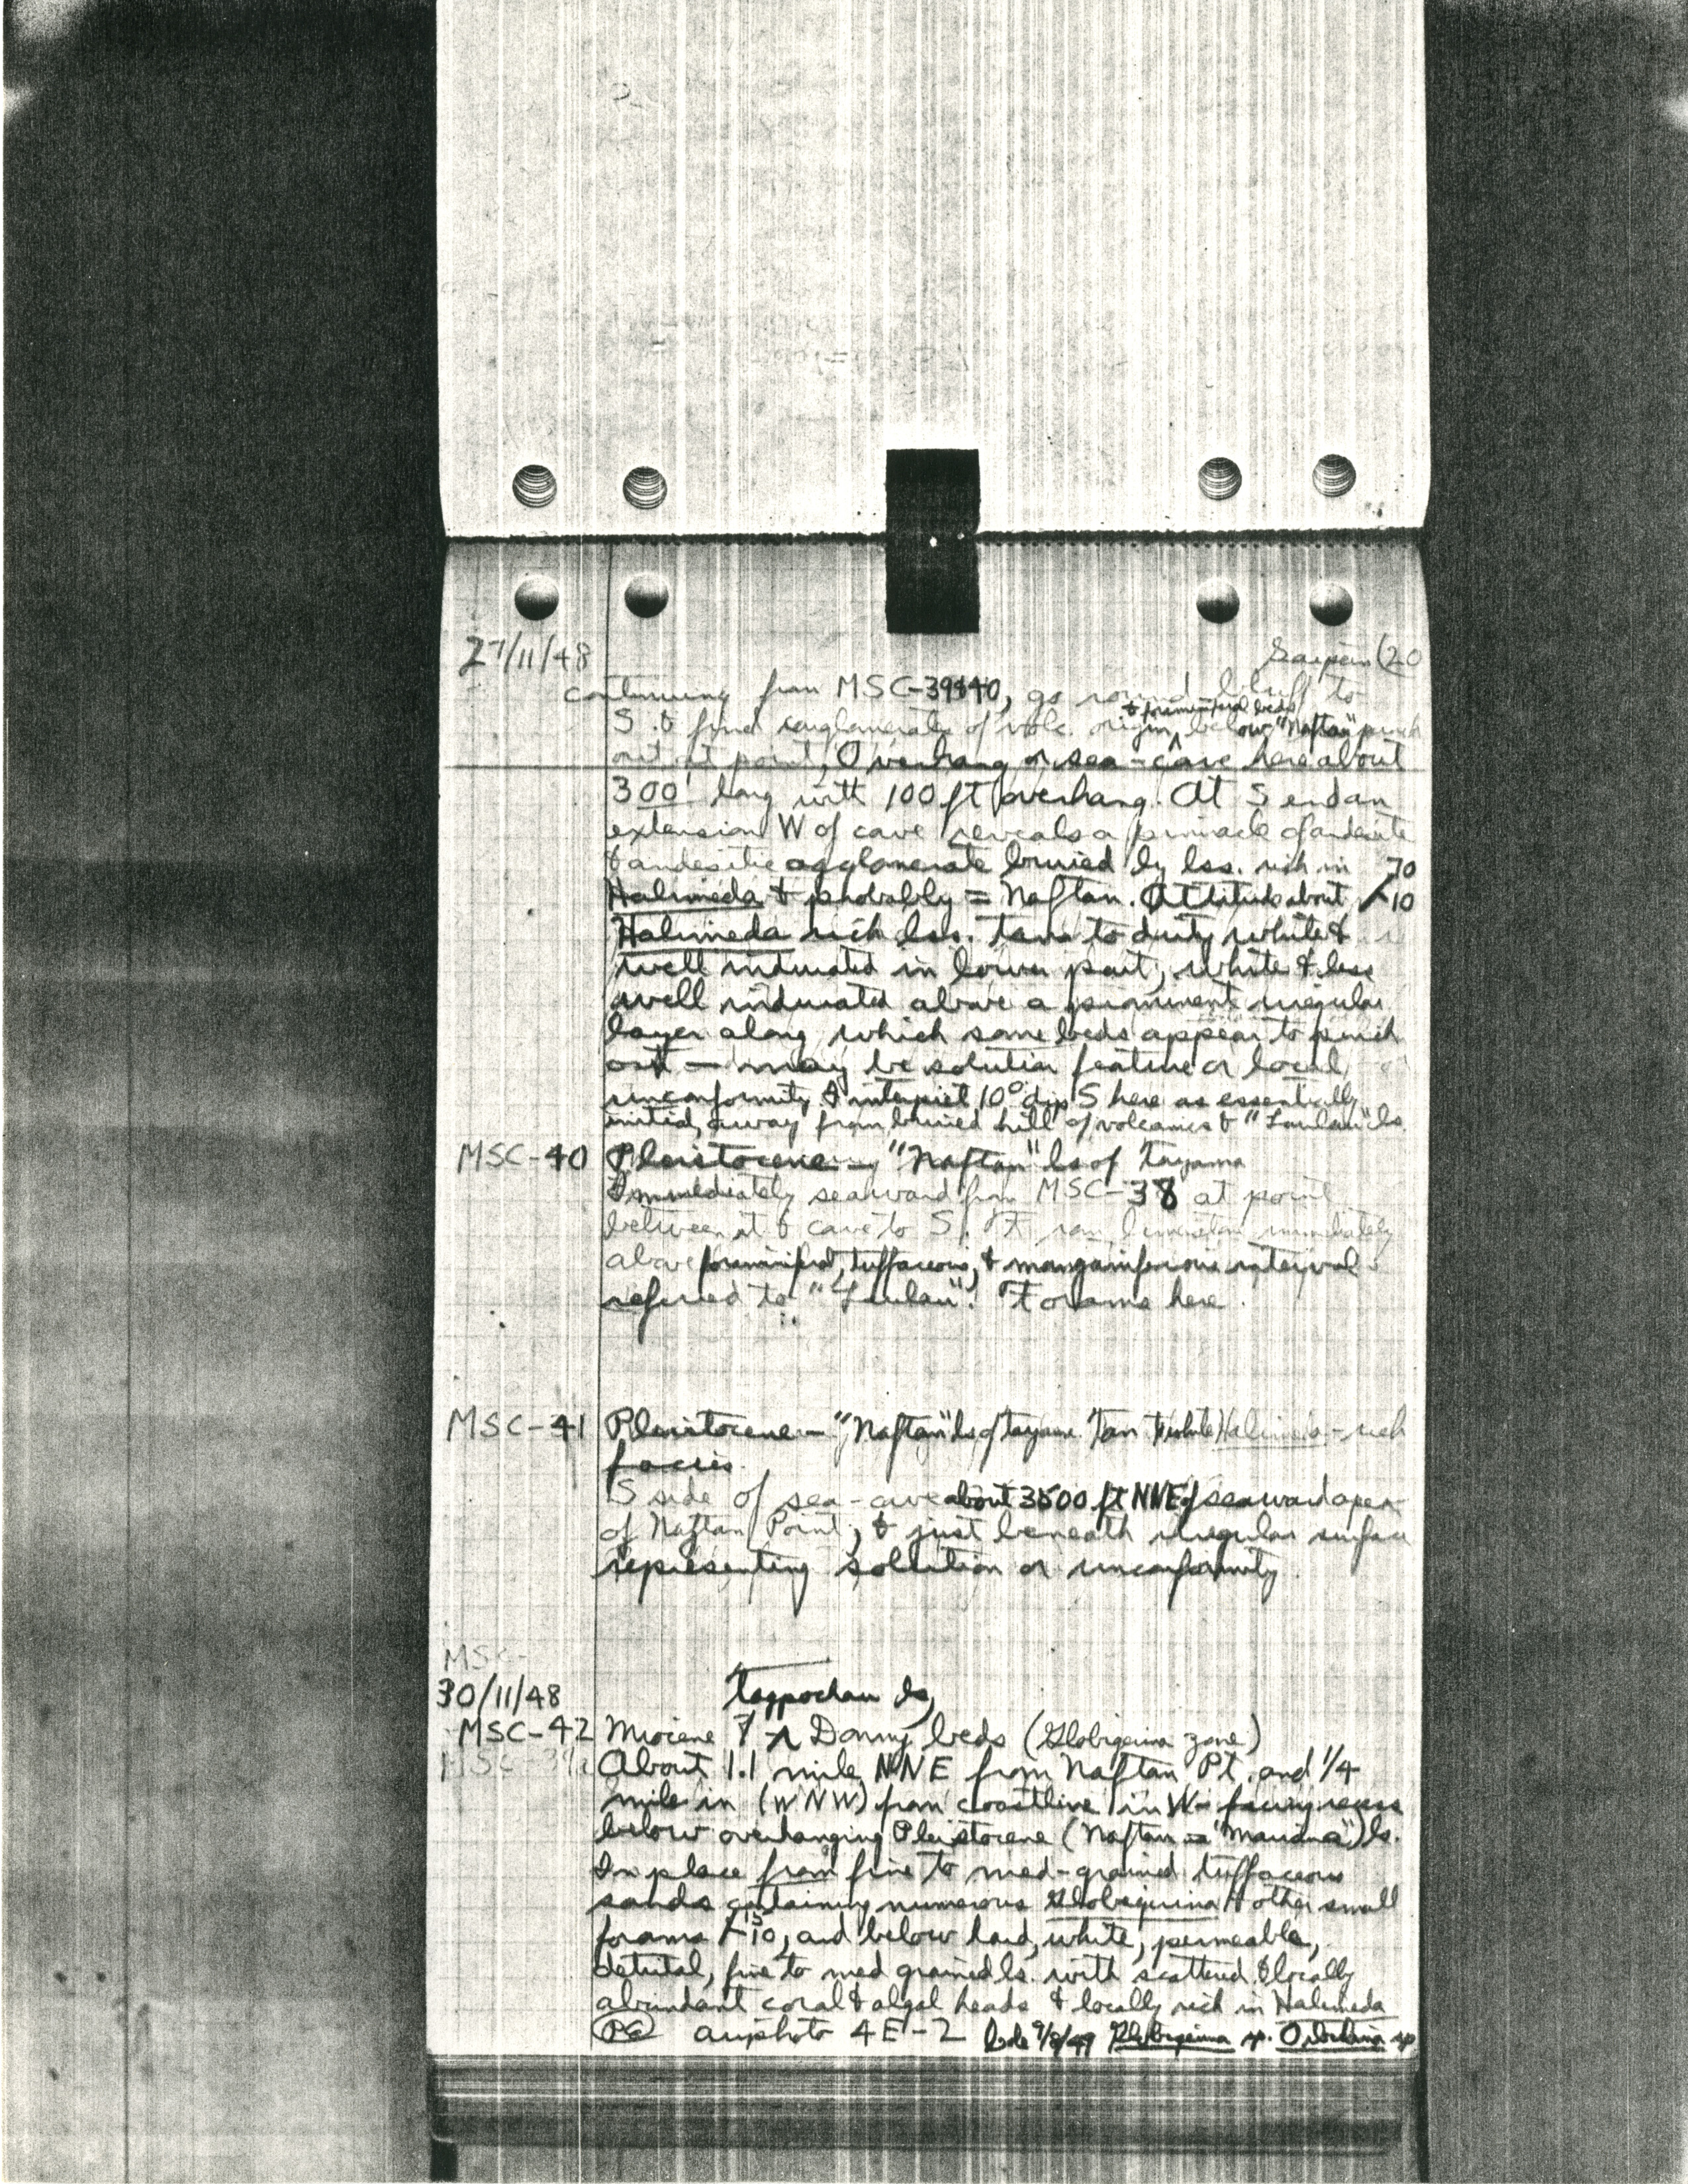 27/11/48 Saipan (20
continuing from MSC-39&40, go round bluff to
S. & find conglomerate of volc. origin & foraminiferal beds below "Naftan" pinch
out at point, Overhang or sea-cave here about
300' long with 100 ft overhang. At S end an
extension W of cave reveals a pinnacle of andesite
& andesitic agglomerate buried by lss. rich in 70
Halimeda & probably = Naftan. Attitude about 10
Halimeda rich lss. tan to dirty white &
well indurated in lower part, white & less
well indurated above a prominent irregular
layer along which some beds appear to pinch
out — may be solution feature or local
unconformity. I interpret 10° dip S here as essentially
initial, away from buried hill of volcanics & "Laulau" ls.
MSC-40 Pleistocene — "Naftan" ls of Tayama
Immediately seaward from MSC-38 at point
between it & cave to S. immediately
above foraminiferal, tuffaceous, & manganiferous interval
referred to "Laulau". Forams here.
MSC-41 Pleistocene — "Naftan" ls of Tayama Tan to white Halimeda-rich
facies.
S side of sea-cave about 3500 ft NNE of seaward apex
of Naftan Point, & just beneath irregular surface
representing solution or unconformity.
MSC-
30/11/48 Tagpochau ls,
MSC-42 Miocene ? Donny beds (Globigerina zone)
About 1.1 mile NNE from Naftan Pt. and 1/4
mile in (WNW) from coastline in W-facing recess
below overhanging Pleistocene (Naftan = "Mariana") ls.
In place from fine to med-grained tuffaceous
sands containing numerous Globigerina & other small
forams 15 10, and below hard, white, permeable,
detrital, fine to med grained ls. with scattered & locally
abundant coral & algal heads & locally rich in Halimeda
(PC) airphoto 4E-2 9/8/49 Globigerina sp. Orbulina sp